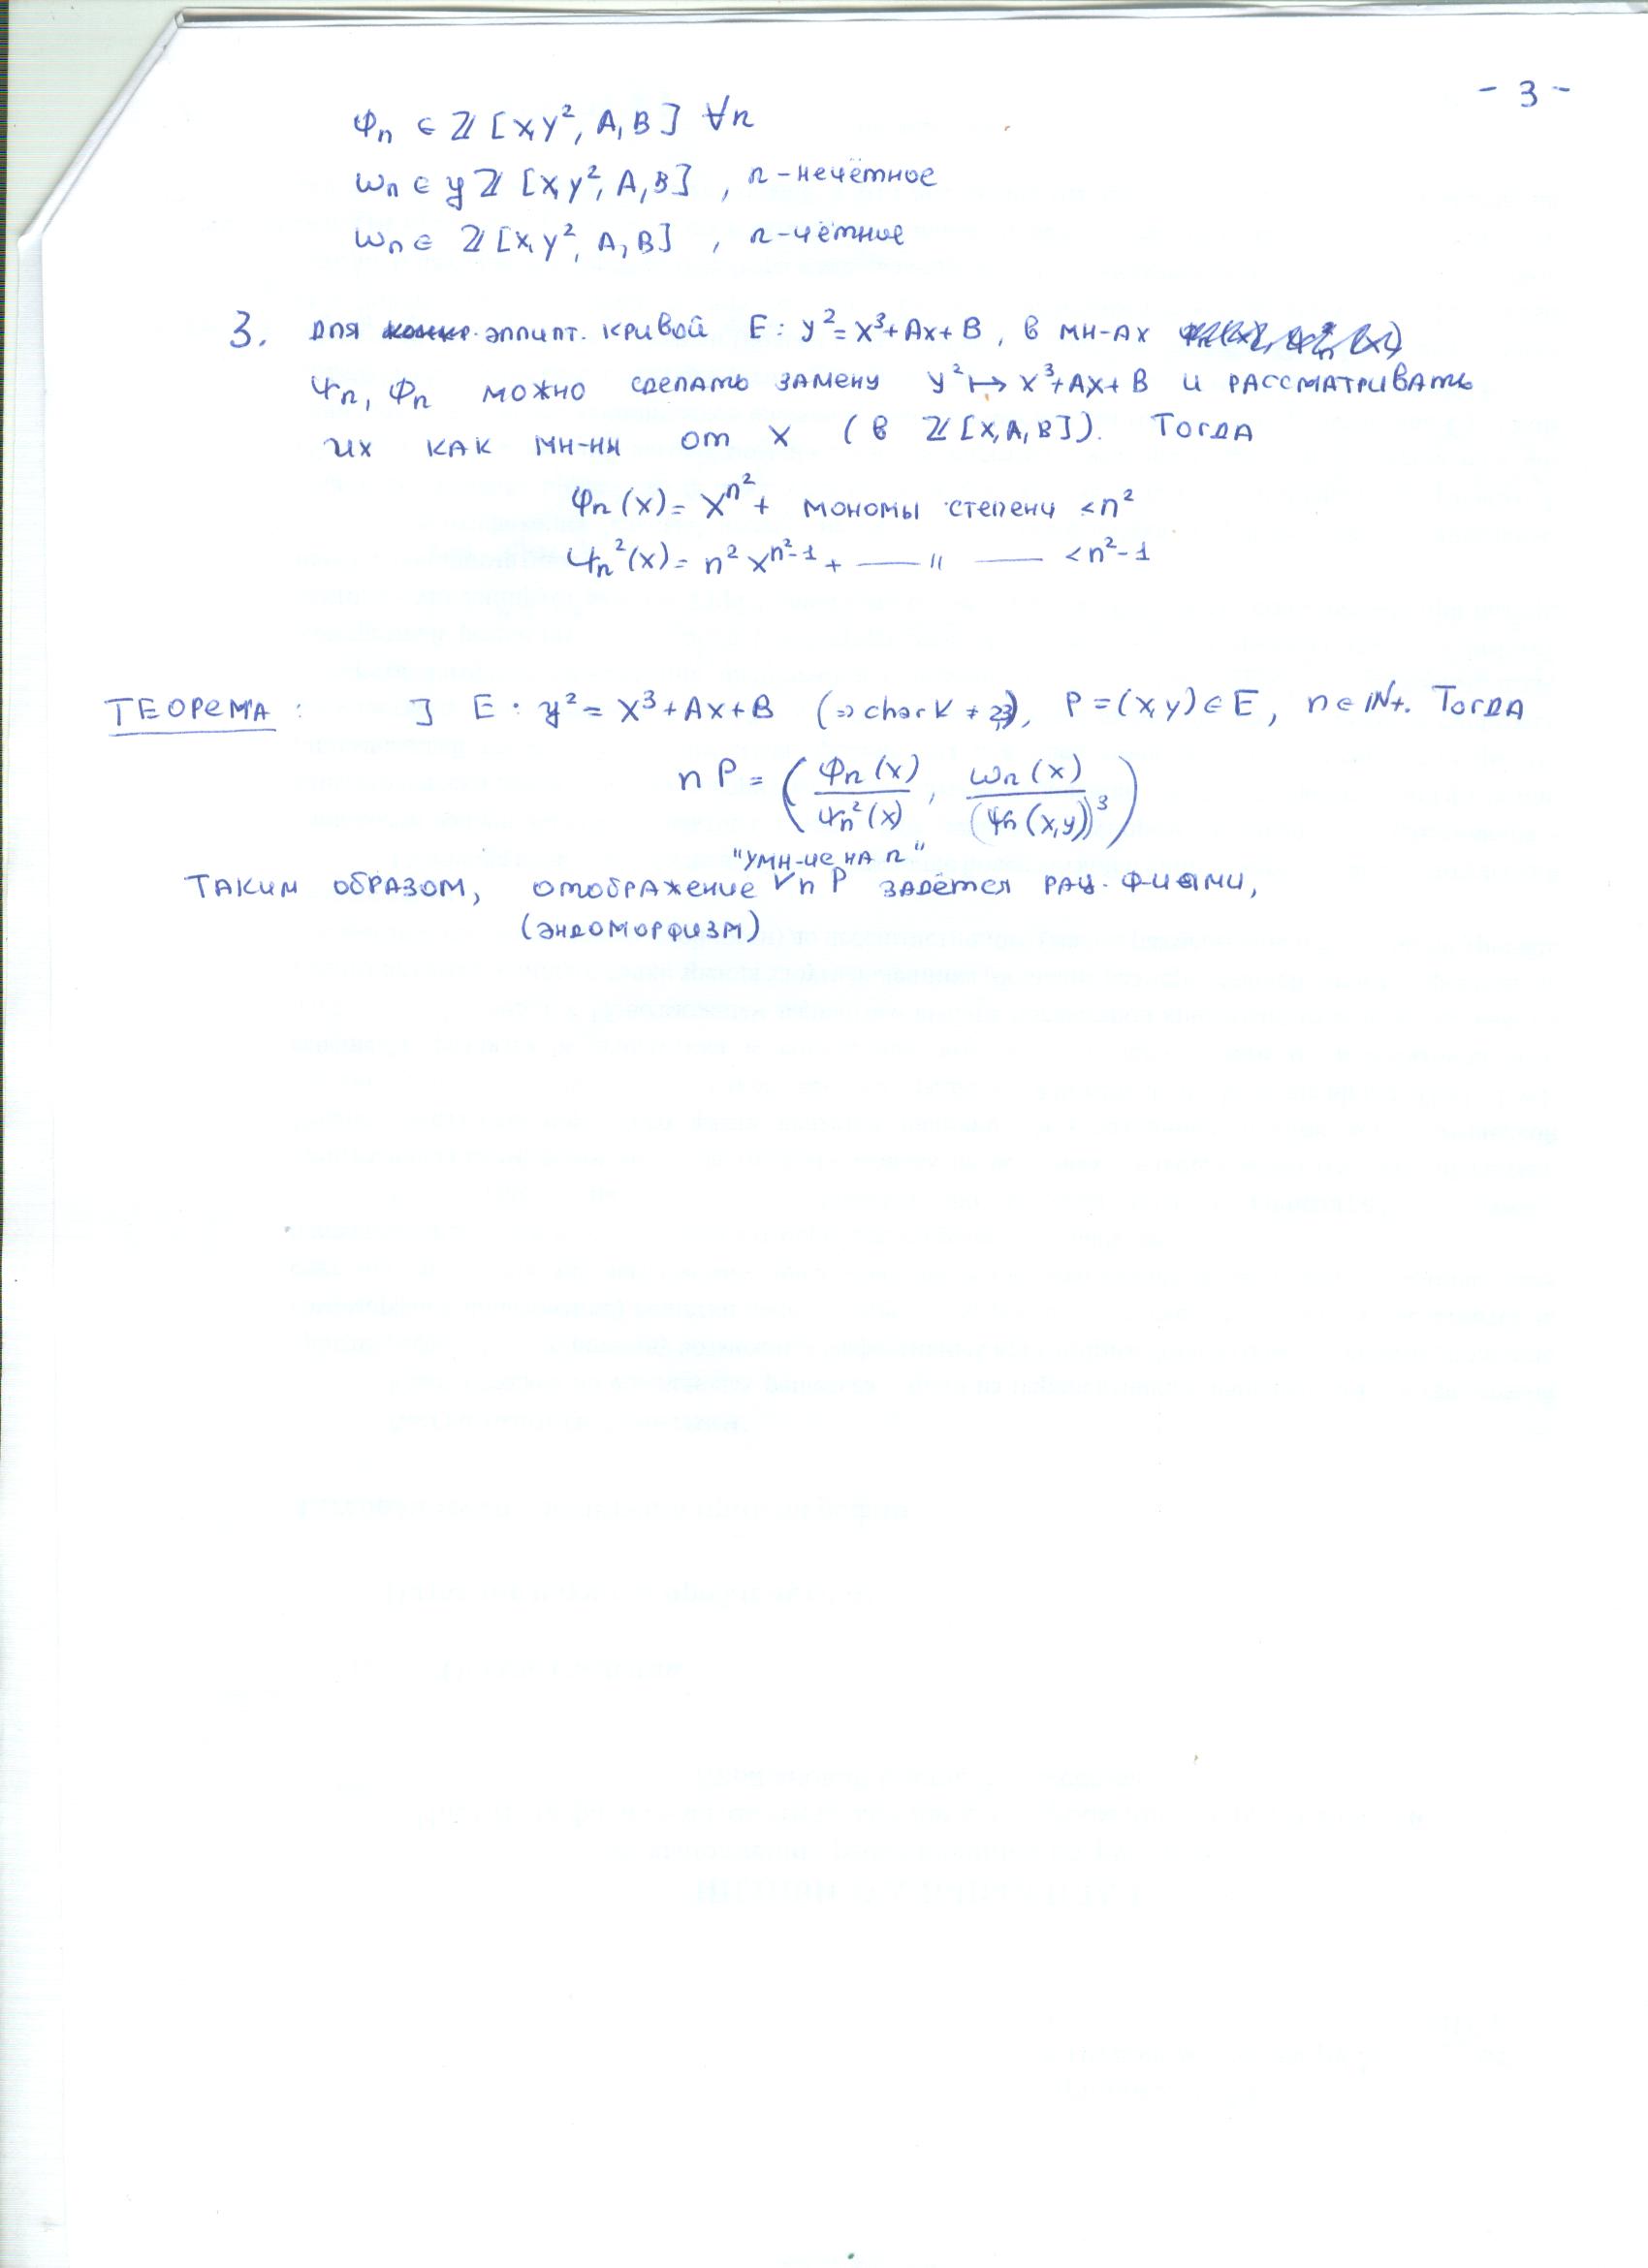 - 3 -
φₙ ∈ ℤ [x, y², A, B] ∀n
ωₙ ∈ y ℤ [x, y², A, B] , n - нечётное
ωₙ ∈ ℤ [x, y², A, B] , n - чётное
3. для эллипт. кривой E : y² = x³ + Ax + B , в мн-ах
ψₙ, φₙ можно сделать замену y² ↦ x³ + Ax + B и рассматривать
их как мн-ны от x ( в ℤ [x, A, B] ). Тогда
φₙ (x) = x^{n²} + мономы степени < n²
ψₙ² (x) = n² x^{n²-1} + —— " —— < n² - 1
ТЕОРЕМА : ] E : y² = x³ + Ax + B (⇒ char K ≠ 2,3), P = (x, y) ∈ E, n ∈ ℕ+. Тогда
n P = ( φₙ (x) / ψₙ² (x) , ωₙ (x) / (ψₙ (x, y))³ )
"умн-ие на n"
Таким образом, отображение ∨ n P задётся рац. ф-иями,
(эндоморфизм)